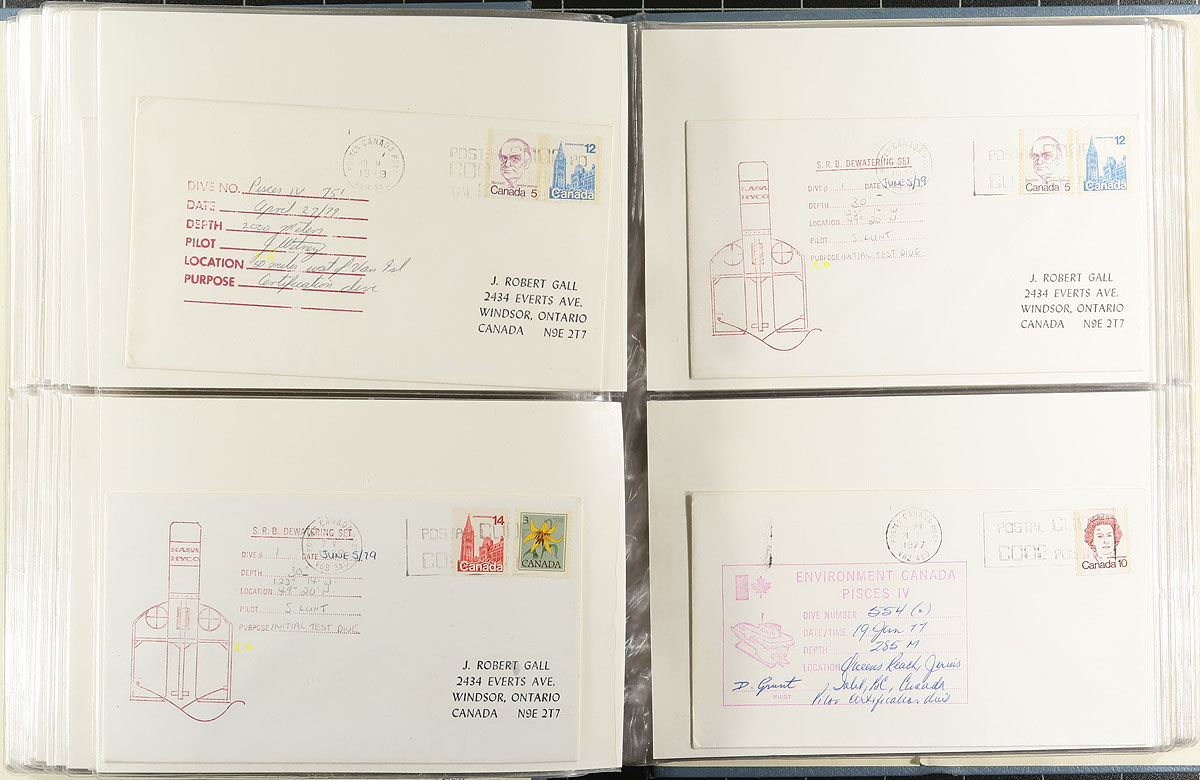 POSTES CANADA P
1979
12
Canada 5
Canada
DIVE NO. Pisces IV 751
DATE April 27/79
DEPTH 2000 meters
PILOT
LOCATION miles west of Van Isl
PURPOSE Certification dive
J. ROBERT GALL
2434 EVERTS AVE.
WINDSOR, ONTARIO
CANADA N9E 2T7
CANADA
POS
CO
12
Canada 5
Canada
NASA
HYCO
S.R.B. DEWATERING SET
DIVE# 1 DATE JUNE 5/79
DEPTH 30'
123° 14' W
LOCATION 49° 20' N
PILOT S. LUNT
PURPOSE INITIAL TEST DIVE
J. ROBERT GALL
2434 EVERTS AVE.
WINDSOR, ONTARIO
CANADA N9E 2T7
CANADA
POSTAL CODE
CO
14
3
CANADA
NASA
HYCO
S.R.B. DEWATERING SET
DIVE# 1 DATE JUNE 5/79
DEPTH 30'
123° 14' W
LOCATION 49° 20' N
PILOT S. LUNT
PURPOSE INITIAL TEST DIVE
J. ROBERT GALL
2434 EVERTS AVE.
WINDSOR, ONTARIO
CANADA N9E 2T7
1977
POSTAL
CODE POS
Canada 10
ENVIRONMENT CANADA
PISCES IV
DIVE NUMBER 554 (2)
DATE/TIME 19 Jan 77
DEPTH 285 M
LOCATION Queens Reach, Jervis
D. Grant Inlet, BC, Canada
PILOT Pilot Certification dive